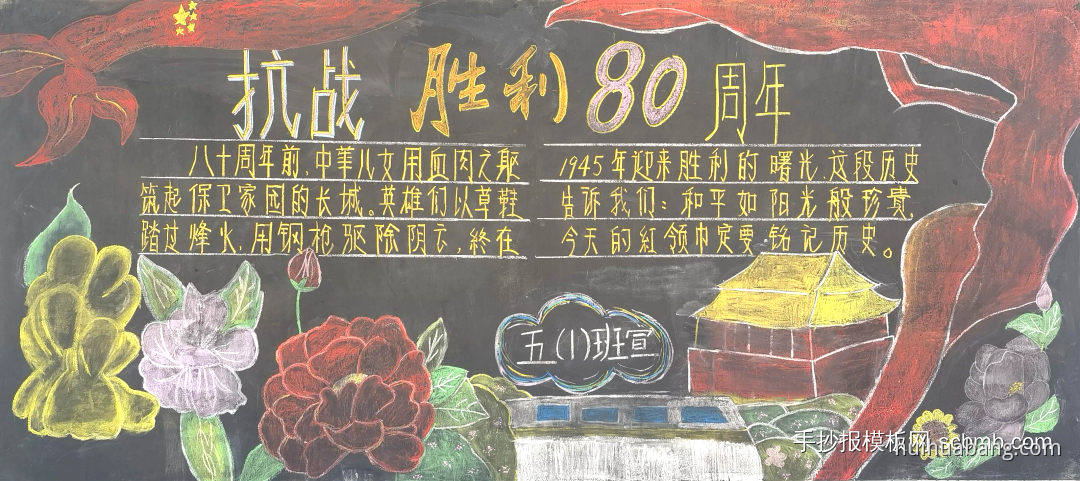 抗战 胜利 80 周年
八十周年前,中华儿女用血肉之躯
筑起保卫家园的长城。英雄们以草鞋
踏过烽火,用钢枪驱除阴云,终在
1945年迎来胜利的曙光,这段历史
告诉我们:和平如阳光般珍贵,
今天的红领巾定要铭记历史。
五(1)班宣
手抄报模板网 scbmb.com
huihuabang.com